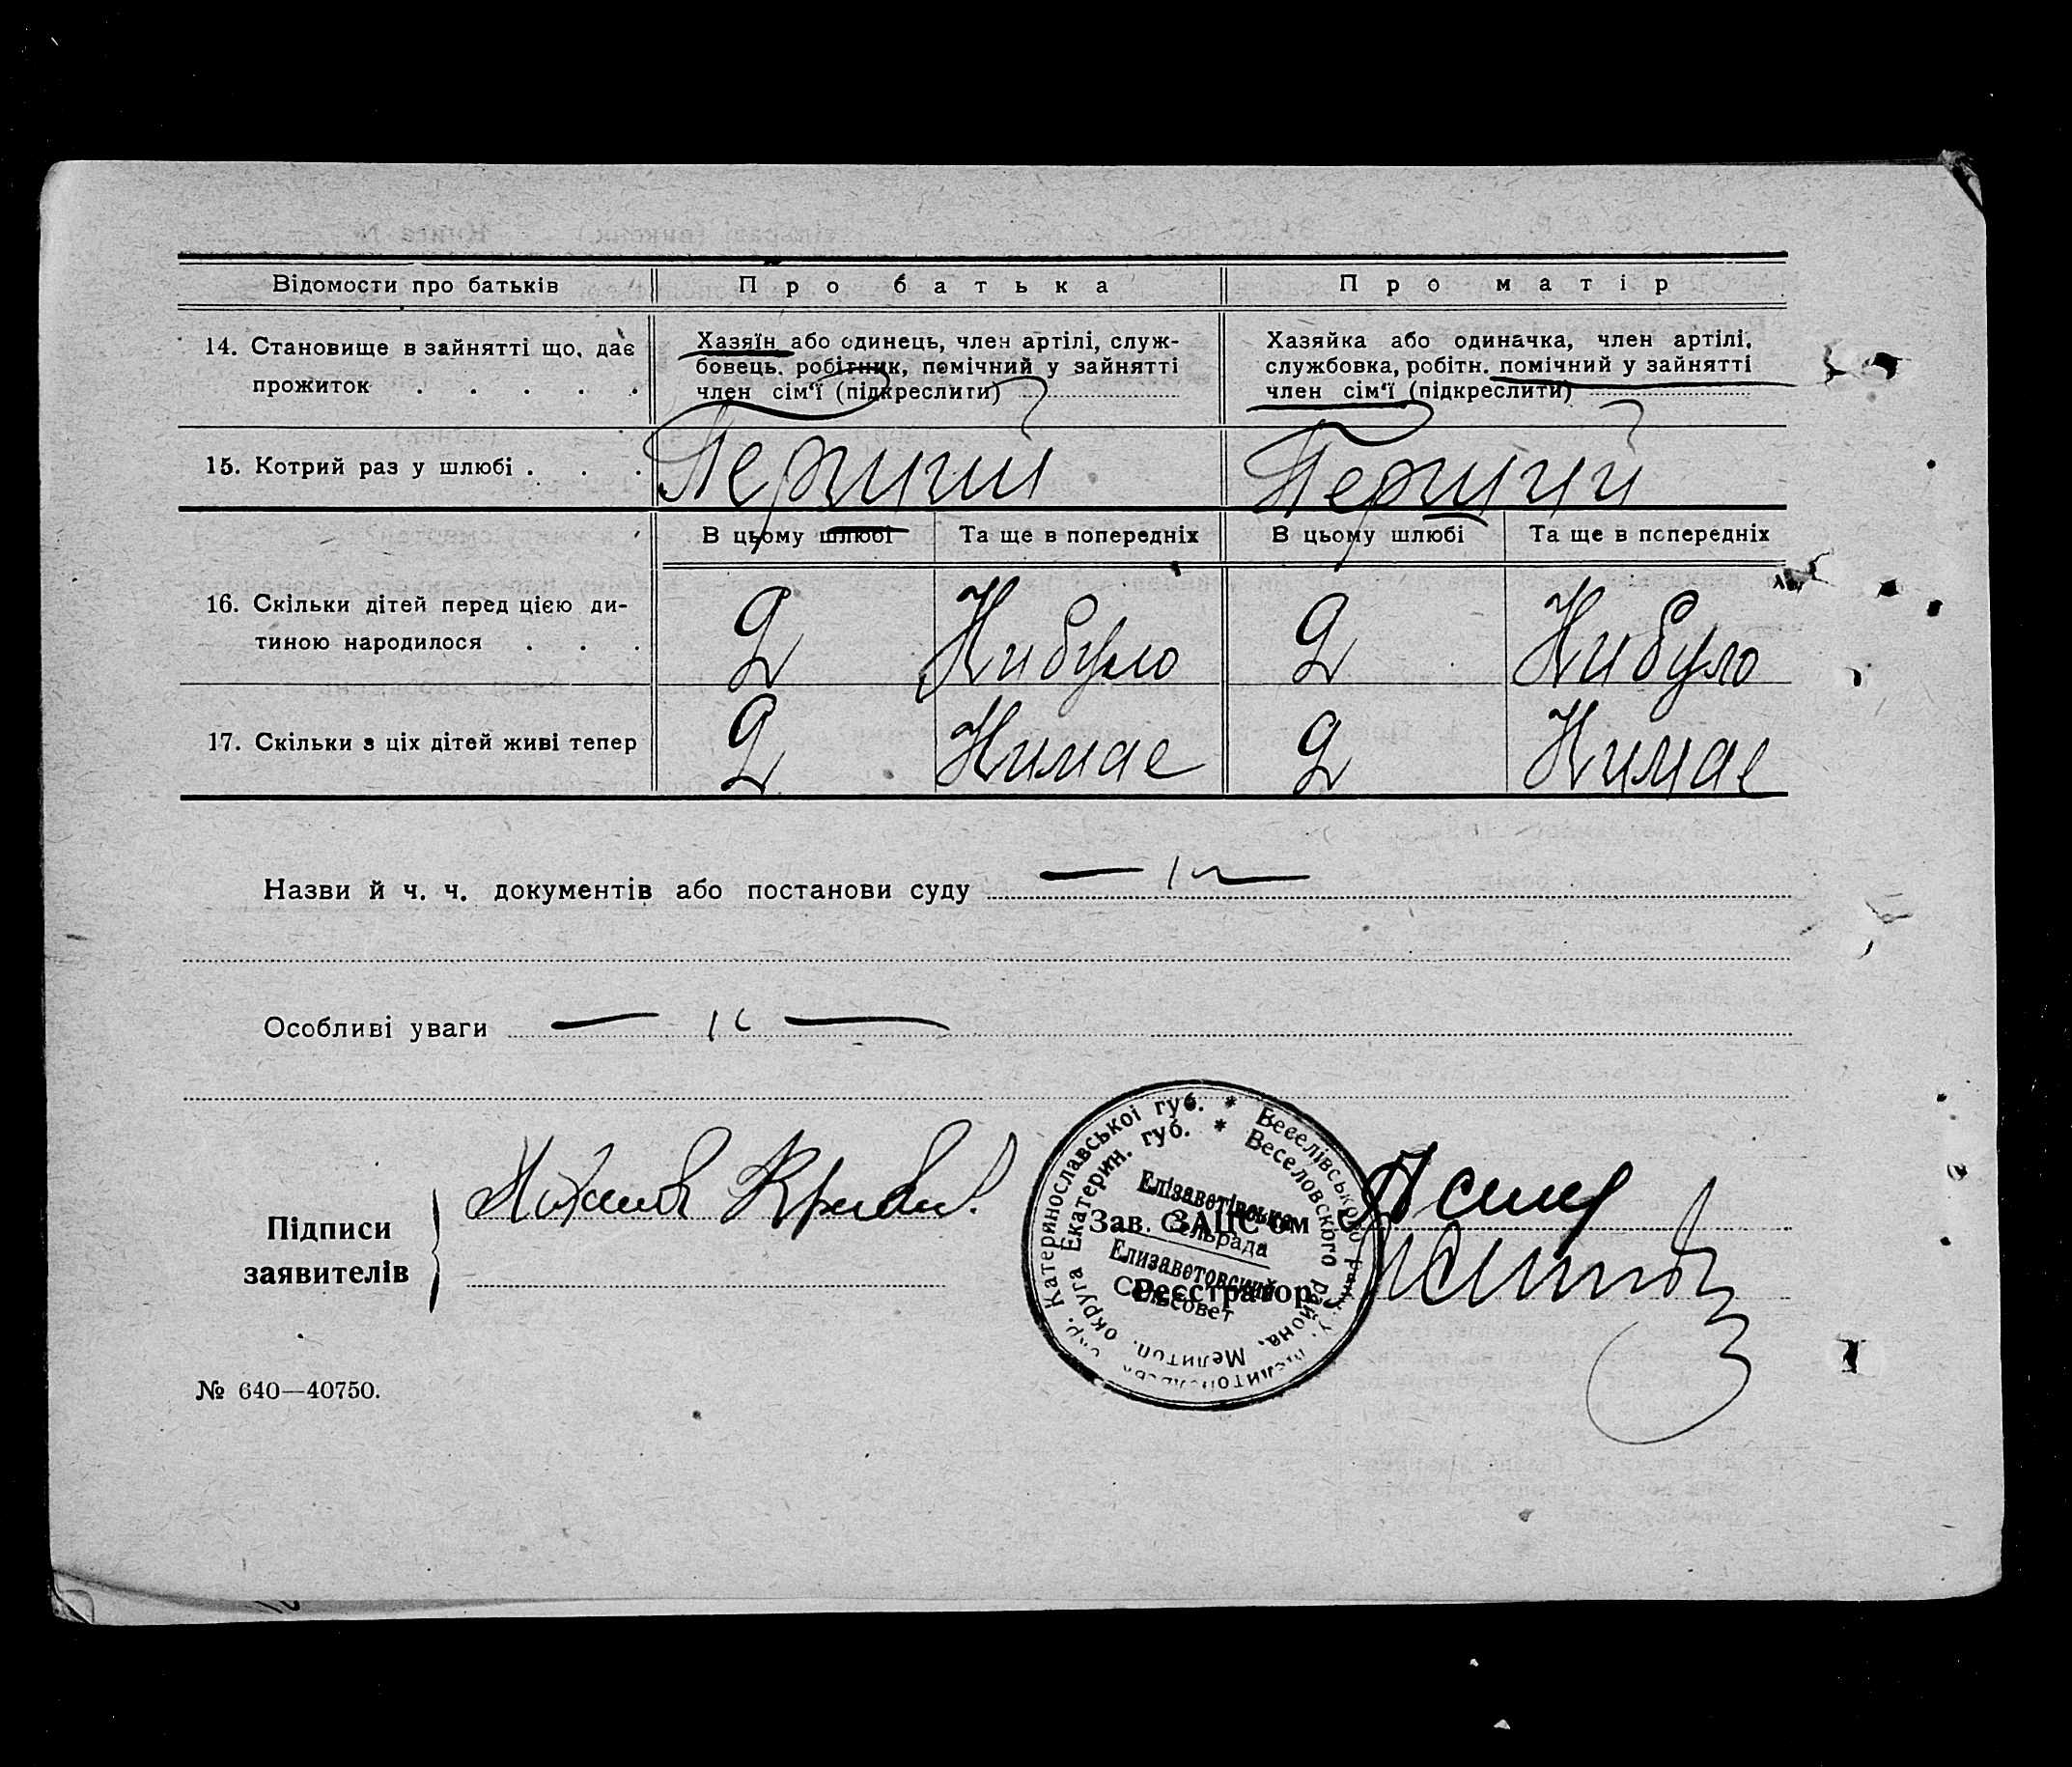 Відомости про батьків Про батька Про матір
14. Становище в зайнятті що, дає
прожиток . . . . .
Хазяїн або одинець, член артілі, служ-
бовець, робітник, помічний у зайнятті
член сім'ї (підкреслити)
Хазяйка або одиначка, член артілі,
службовка, робітн. помічний у зайнятті
член сім'ї (підкреслити)
15. Котрий раз у шлюбі . . . Перший Перший
В цьому шлюбі Та ще в попередніх В цьому шлюбі Та ще в попередніх
16. Скільки дітей перед цією ди-
тиною народилося . . .
2 Нибуло 2 Нибуло
17. Скільки з ціх дітей живі тепер 2 Нимае 2 Нимае
Назви й ч. ч. документів або постанови суду
Особливі уваги
Підписи
заявителів
Зав. ЗАГС'ом
Реєстратор
Катеринославської губ. * Веселівського
округа Екатерин. губ. * Веселовского района, Мелитоп.
Елізаветівська
Сільрада
Елизаветовский
Сельсовет
№ 640—40750.